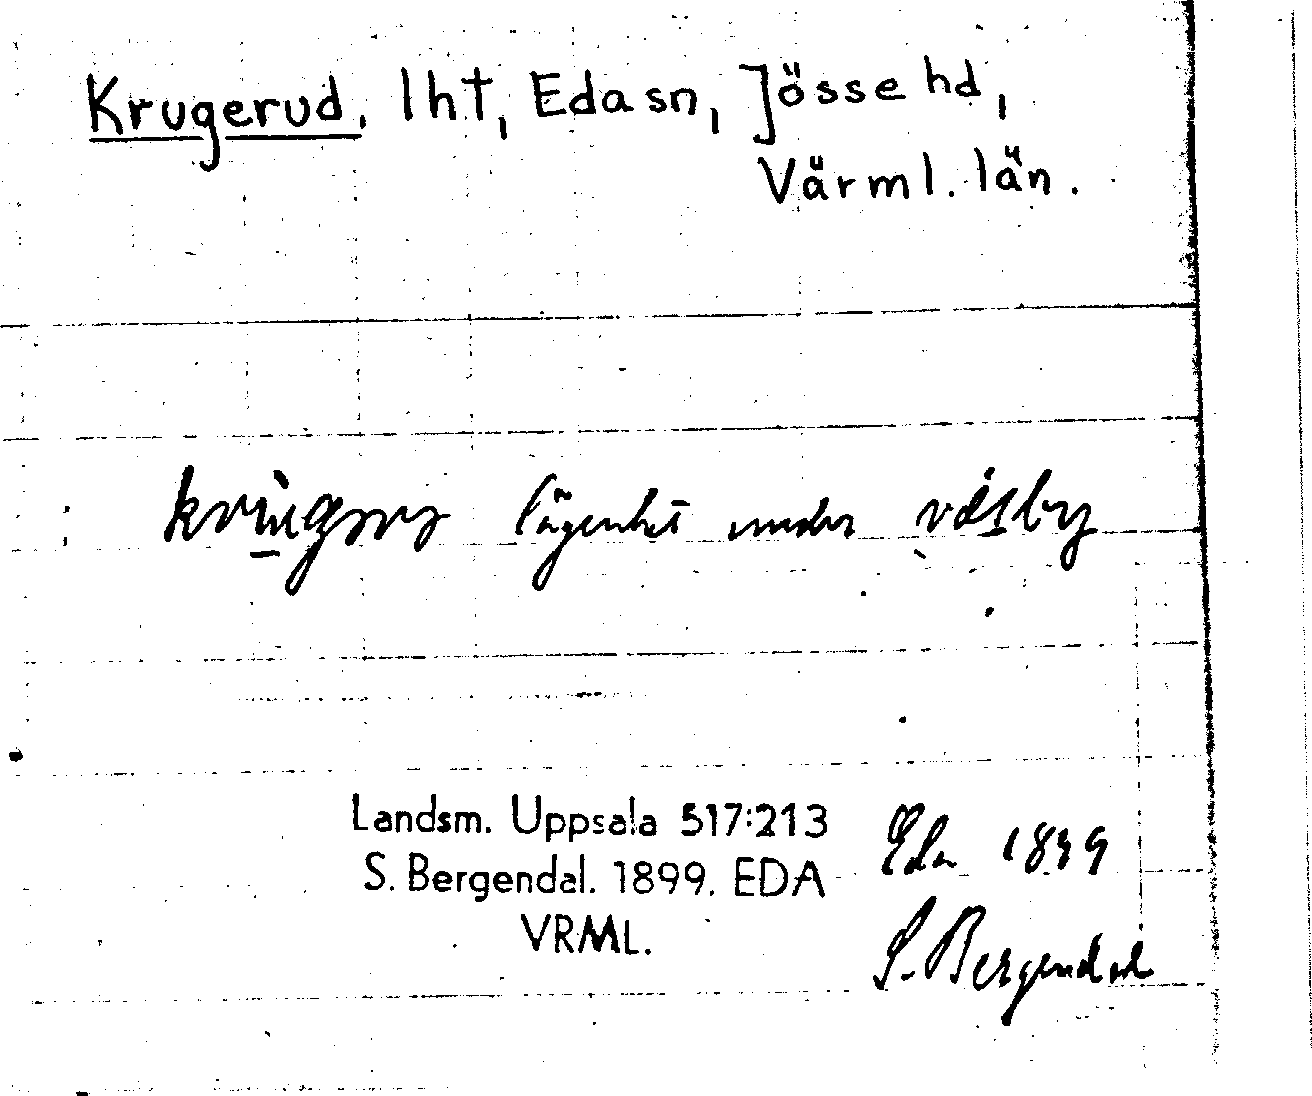 Krugerud, lht, Eda sn, Jösse hd,
Värml. län.
lägenhet under
Landsm. Uppsala 517:213
S. Bergendal. 1899. EDA
VRML.
Eda 1899
S. Bergendal